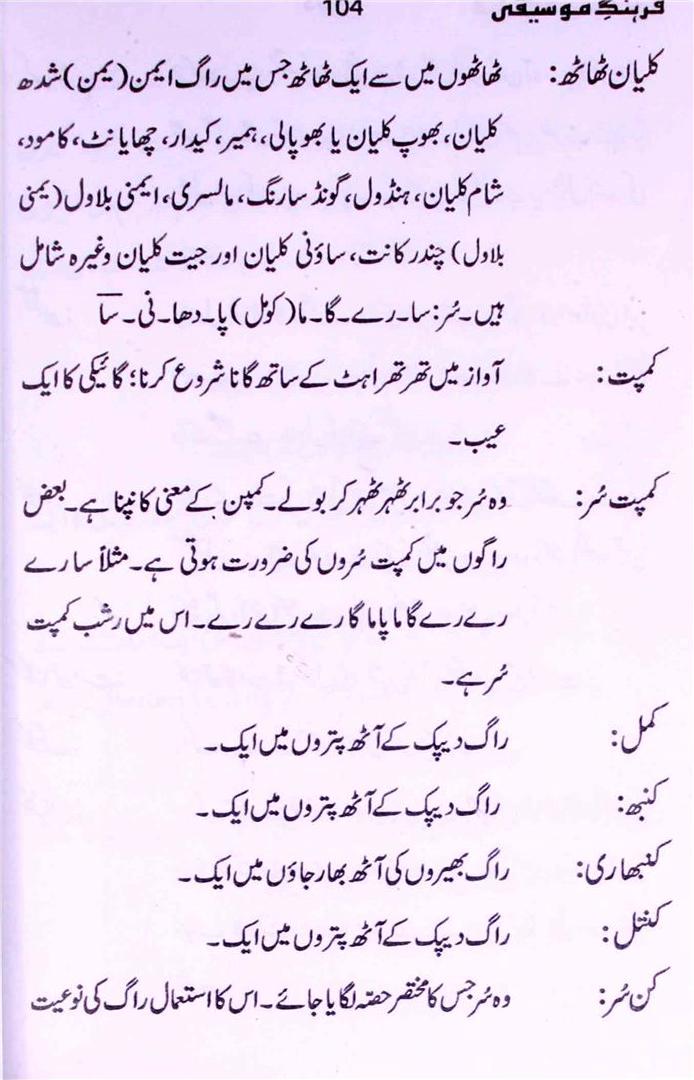 فرہنگِ موسیقی 104
کلیان ٹھاٹھ: ٹھاٹھوں میں سے ایک ٹھاٹھ جس میں راگ ایمن (یمن) شدھ
کلیان، بھوپ کلیان یا بھوپالی، ہمیر، کیدار، چھایانٹ، کامود،
شام کلیان، ہنڈول، گونڈ سارنگ، مالسری، ایمنی بلاول (یمنی
بلاول) چندر کانت، ساؤنی کلیان اور جیت کلیان وغیرہ شامل
ہیں۔ سُر: سا۔ رے۔ گا۔ ما (کومل) پا۔ دھا۔ نی۔ سا
کمپت: آواز میں تھرتھراہٹ کے ساتھ گانا شروع کرنا؛ گائیکی کا ایک
عیب۔
کمپت سُر: وہ سُر جو برابر ٹھہر ٹھہر کر بولے۔ کمپن کے معنی کانپنا ہے۔ بعض
راگوں میں کمپت سُروں کی ضرورت ہوتی ہے۔ مثلاً سا رے
رے رے گا ما پا ما گا رے رے رے۔ اس میں رشب کمپت
سُر ہے۔
کمل: راگ دیپک کے آٹھ پتروں میں ایک۔
کنبھ: راگ دیپک کے آٹھ پتروں میں ایک۔
کنبھاری: راگ بھیروں کی آٹھ بھارجاؤں میں ایک۔
کنتل: راگ دیپک کے آٹھ پتروں میں ایک۔
کن سُر: وہ سُر جس کا مختصر حصّہ لگایا جائے۔ اس کا استعمال راگ کی نوعیت